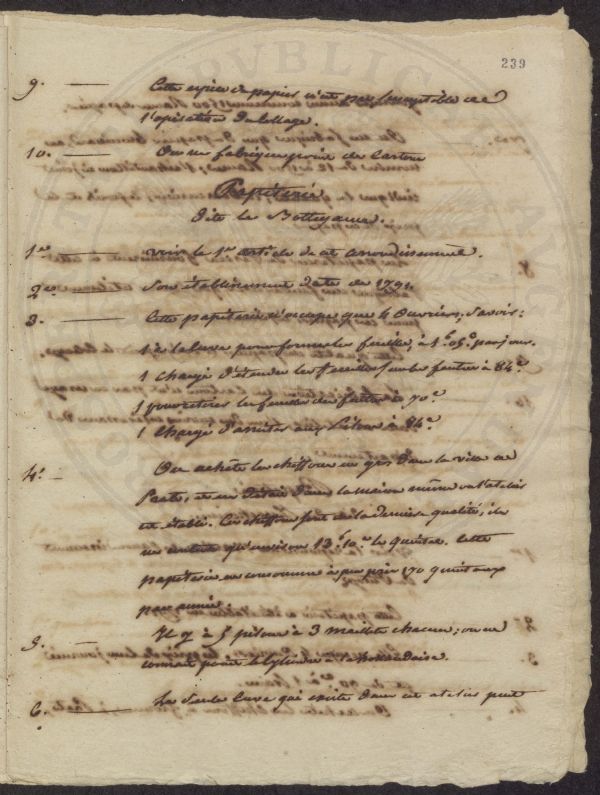 239
9. Cette espèce de papier n'est pas susceptible de
l'opération du collage.
10. On ne fabrique point de Carton
Papéterie
dite le Botteyama.
1er voir le 1er article de cet arrondissement.
2e Son établissement date de 1791.
3. Cette papéterie n'occupe que 4 Ouvriers, Savoir:
1 à la cuve pour former les feuilles, à 1f. 05c. par jour.
1 chargé d'étendre les feuilles sur les feutres à 84c.
1 pour retirer les feuilles des feutres à 70c.
1 chargé d'assister aux Pilons à 84c.
4. On achète les chiffons en gros dans la ville de
et en détail dans la maison même où l'atelier
est établi. Ces chiffons sont de la dernière qualité, ils
ne coûtent qu'environ 13f. 10c. le quintal. Cette
papéterie en consomme à peu près 170 quintaux
par année.
5. Il y a 5 pilons à 3 maillets chacun; on ne
connait point le Cylindre à la hollandaise.
6. La seule Cuve qui existe dans cet atelier peut